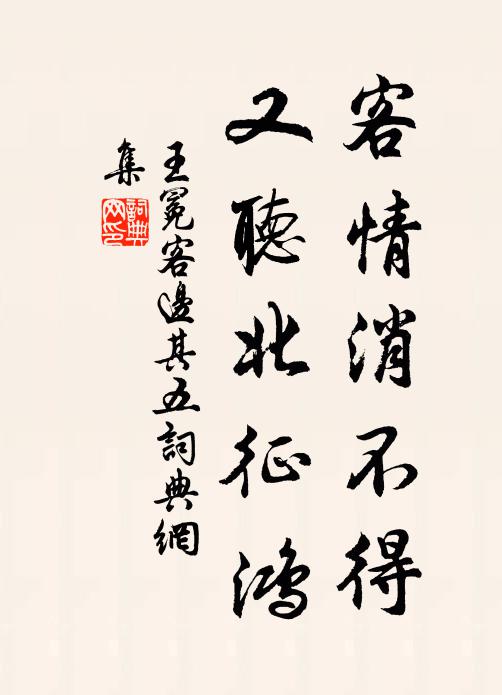 客情消不得
又聽北征鴻
王冕客邊其五詞典網
集
詞典
网印